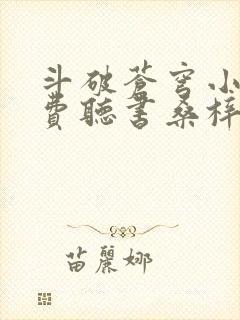 斗破苍穹小
費聽書桑梓
苗麗娜